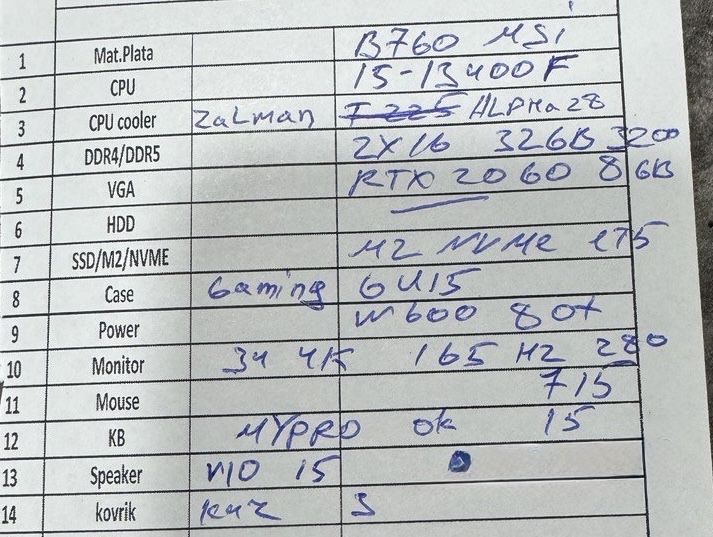 1 Mat.Plata B760 MSi
2 CPU i5-13400F
3 CPU cooler ZaLMan ALPHa 28
4 DDR4/DDR5 2X16 32GB 3200
5 VGA RTX 2060 8GB
6 HDD
7 SSD/M2/NVME M2 NVMe 1T5
8 Case Gaming GU15
9 Power W600 80+
10 Monitor 34 4K 165 HZ 280
11 Mouse 715
12 KB MYPRO ok 15
13 Speaker 15
14 kovrik 5